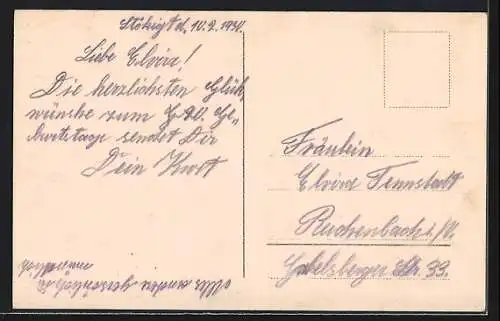 Stöckigt d. 10.2.1930.
Liebe Elvira!
Die herzlichsten Glück
wünsche zum 20. Ge„
burtstage sendet Dir
Dein Kurt
Alles andere persönlich
Fräulein
Elvira Tennstadt
Reichenbach i/V.
Gabelsberger Str. 33.